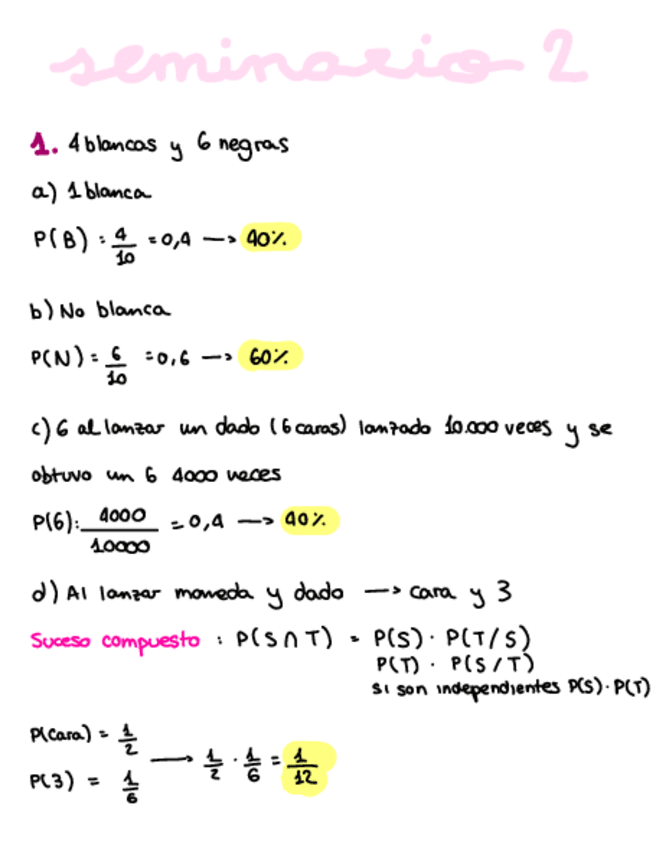 seminario 2
1. 4 blancas y 6 negras
a) 1 blanca
P(B) : 4/10 = 0,4 —> 40%
b) No blanca
P(N) = 6/10 = 0,6 —> 60%
c) 6 al lanzar un dado (6 caras) lanzado 10.000 veces y se
obtuvo un 6 4000 veces
P(6): 4000/10000 = 0,4 —> 40%
d) Al lanzar moneda y dado —> cara y 3
Suceso compuesto : P(S ∩ T) = P(S) · P(T/S)
P(T) · P(S/T)
si son independientes P(S) · P(T)
P(cara) = 1/2
P(3) = 1/6
—> 1/2 · 1/6 = 1/12